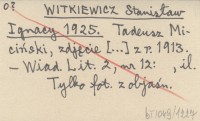 WITKIEWICZ Stanisław
Ignacy 1925. Tadeusz Mi-
ciński, zdjęcie [...] z r. 1913.
- Wiad. Lit. 2, nr 12: , il.
Tylko fot. z objaśn.